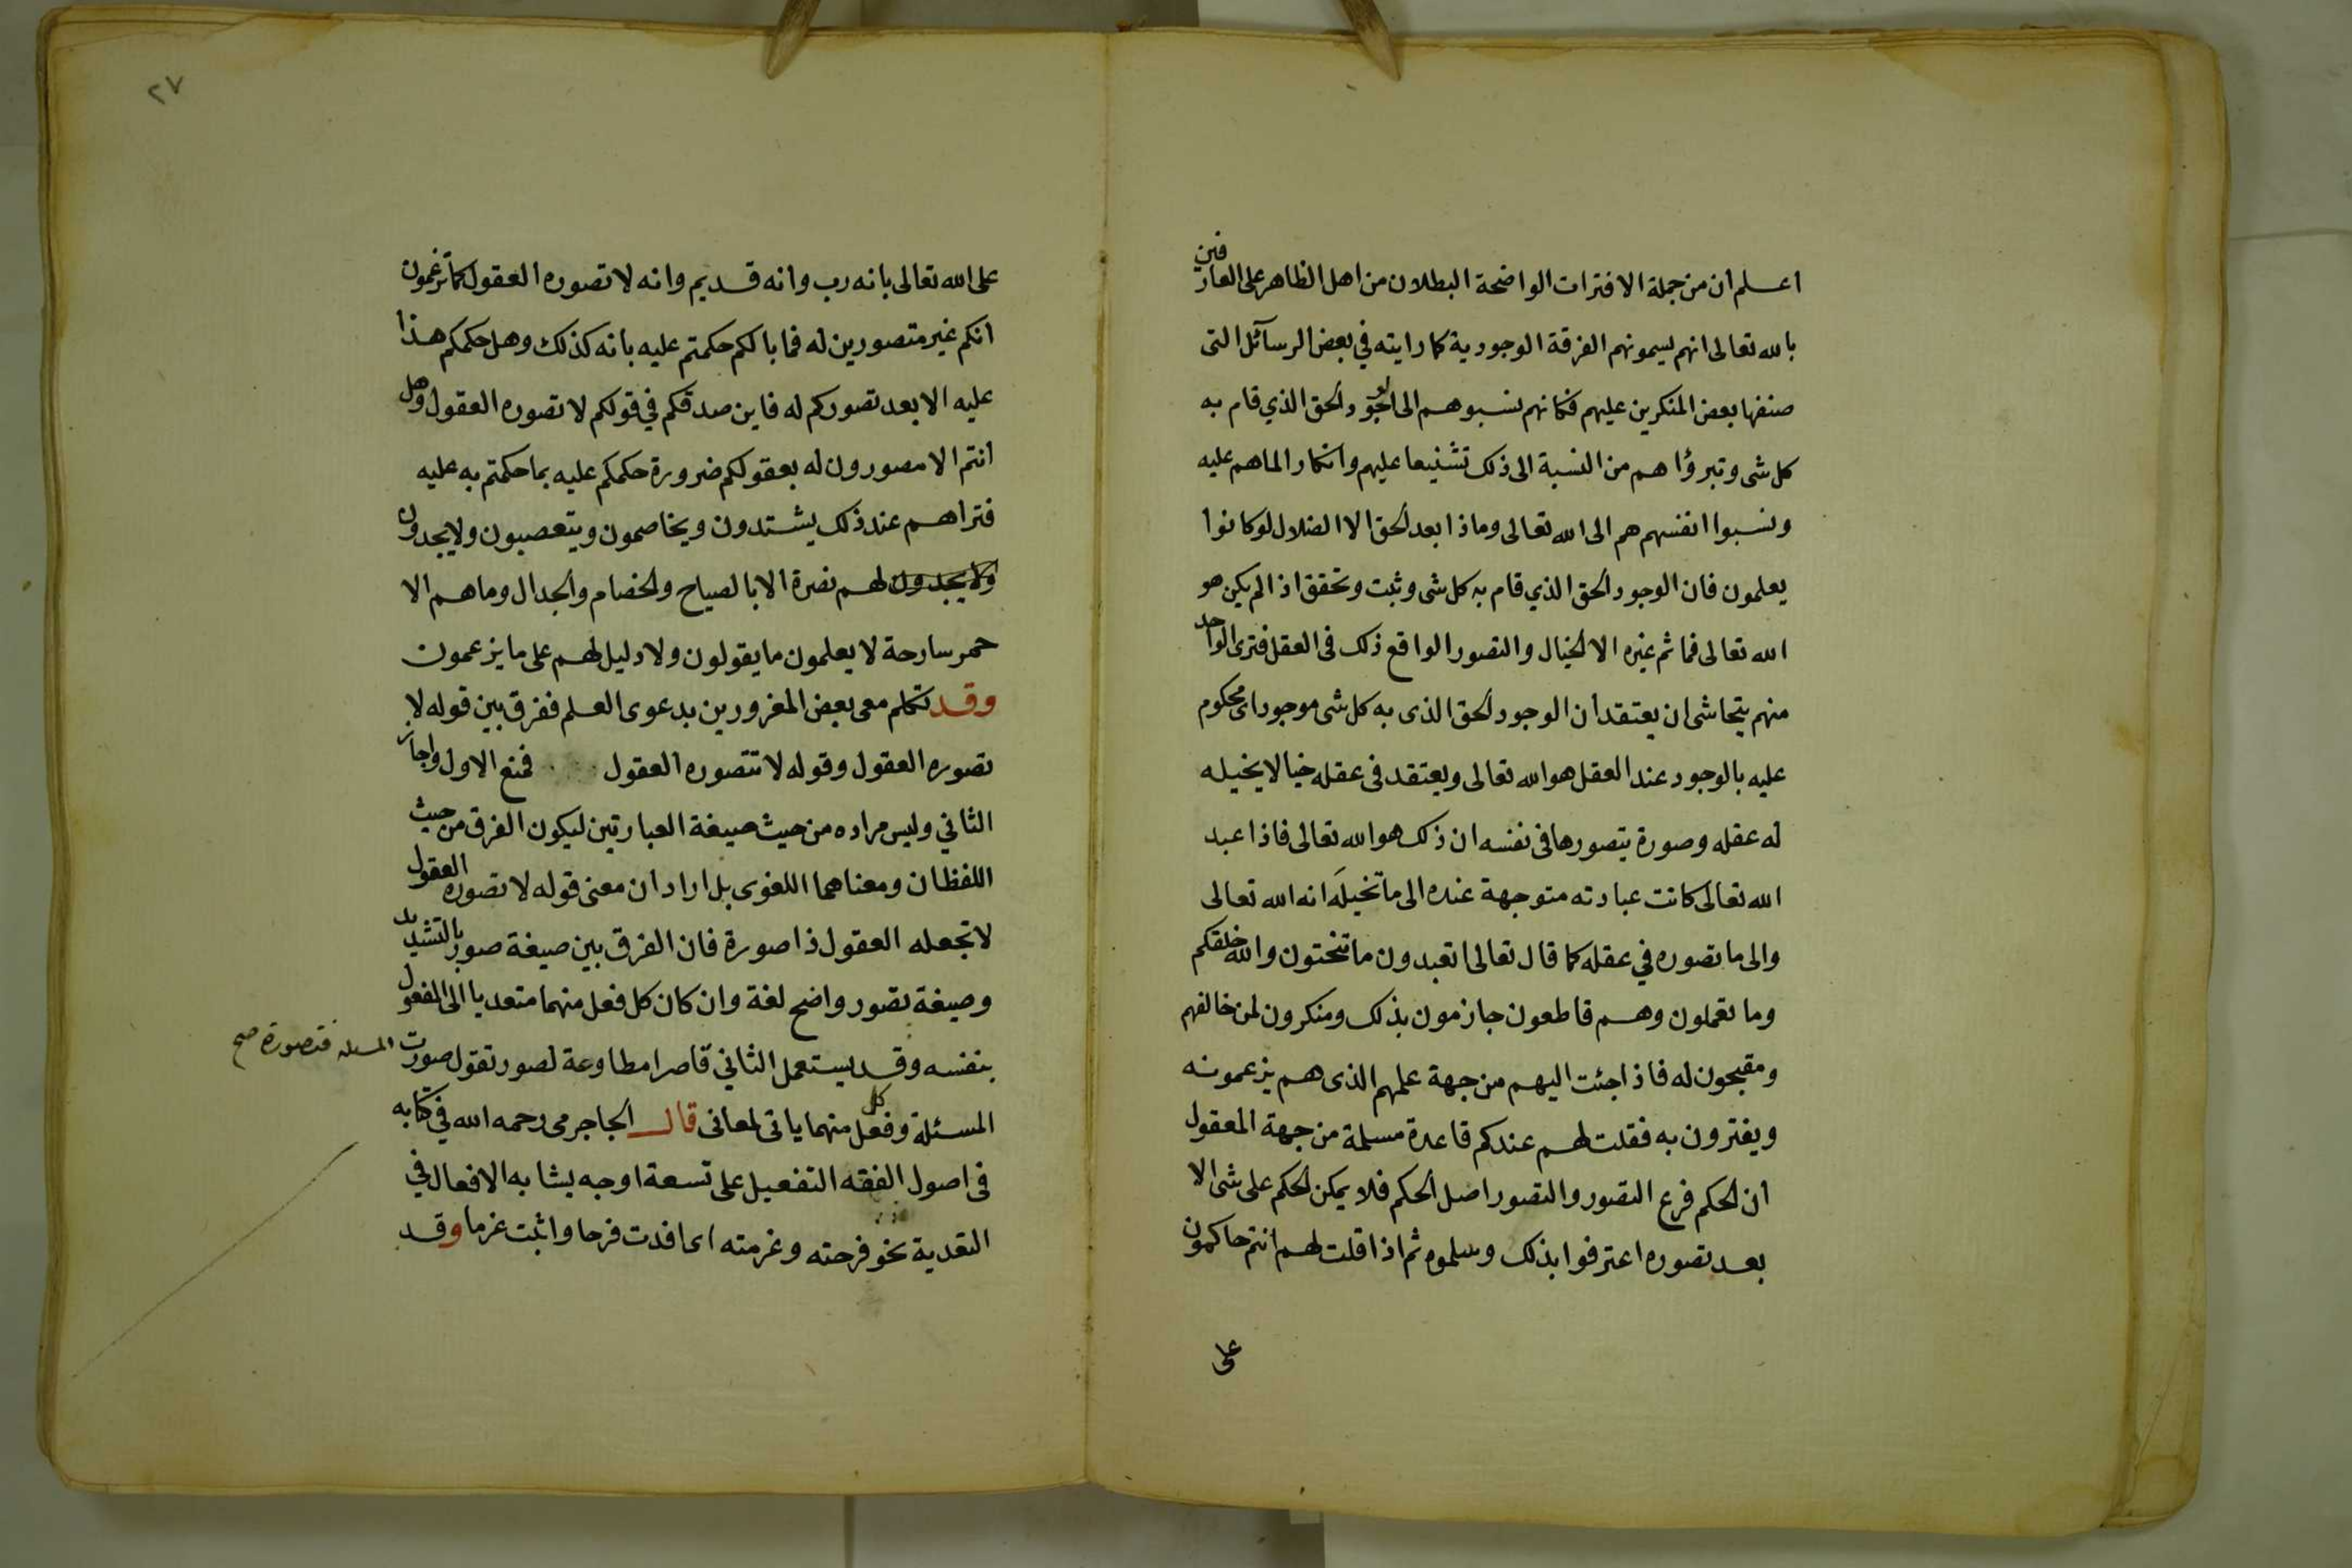 اعلم ان من جملة الافترات الواضحة البطلان من اهل الظاهر على العارفين
بالله تعالى انهم يسمونهم الفرقة الوجودية كما رايته في بعض الرسآئل التى
صنفها بعض المنكرين عليهم فكانهم نسبوهم الى الوجود الحق الذي قام به
كل شى وتبرؤا هم من النسبة الى ذلك تشنيعا عليهم وانكارا لما هم عليه
ونسبوا انفسهم هم الى الله تعالى وماذا بعد الحق الا الضلال لو كانوا
يعلمون فان الوجود الحق الذي قام به كل شى وثبت وتحقق اذا لم يكن هو
الله تعالى فما ثم غيره الا الخيال والتصور الواقع ذلك فى العقل فترى الواحد
منهم يتحاشى ان يعتقد ان الوجود الحق الذى به كل شى موجود اى محكوم
عليه بالوجود عند العقل هو الله تعالى ويعتقد فى عقله خيالا يخيله
له عقله وصورة يتصورها فى نفسه ان ذلك هو الله تعالى فاذا عبد
الله تعالى كانت عبادته متوجهة عنده الى ما تخيله انه الله تعالى
والى ما تصوره في عقله كما قال تعالى اتعبدون ما تنحتون والله خلقكم
وما تعملون وهم قاطعون جازمون بذلك ومنكرون لمن خالفهم
ومقبحون له فاذا جئت اليهم من جهة علمهم الذى هم يزعمونه
ويفترون به فقلت لهم عندكم قاعدة مسلمة من جهة المعقول
ان الحكم فرع التصور والتصور اصل الحكم فلا يمكن الحكم على شى الا
بعد تصوره اعترفوا بذلك وسلموه ثم اذا قلت لهم انتم حاكمون
على
٢٧
على الله تعالى بانه رب وانه قديم وانه لا تصوره العقول كما تزعمون
انكم غير متصورين له فما بالكم حكمتم عليه بانه كذلك وهل حكمكم هذا
عليه الا بعد تصوركم له فاين صدقكم في قولكم لا تصوره العقول وهل
انتم الا مصورون له بعقولكم ضرورة حكمكم عليه بما حكمتم به عليه
فتراهم عند ذلك يشتدون ويخاصمون ويتعصبون ولا يجدون
ولا يجدون لهم نصرة الا بالصياح والخصام والجدال وما هم الا
حمر سارحة لا يعلمون ما يقولون ولا دليل لهم على ما يزعمون
وقد تكلم معى بعض المغرورين بدعوى العلم ففرق بين قوله لا
تصوره العقول وقوله لا تتصوره العقول فمنع الاول واجاز
الثاني وليس مراده من حيث صيغة العبارتين ليكون الفرق من حيث
اللفظان ومعناهما اللغوى بل اراد ان معنى قوله لا تصوره العقول
لا تجعله العقول ذا صورة فان الفرق بين صيغة صور بالتشديد
وصيغة تصور واضح لغة وان كان كل فعل منهما متعديا الى المفعول
بنفسه وقد يستعمل الثاني قاصرا مطاوعة لصور تقول صورت
المسئلة فتصورة صح
المسئلة وكل فعل منهما ياتى لمعانى قال الجاجرمى رحمه الله في كتابه
فى اصول الفقه التفعيل على تسعة اوجه يشابه الافعال في
التعدية نحو فرحته وغرمته اى افدت فرحا واثبت غرما وقد